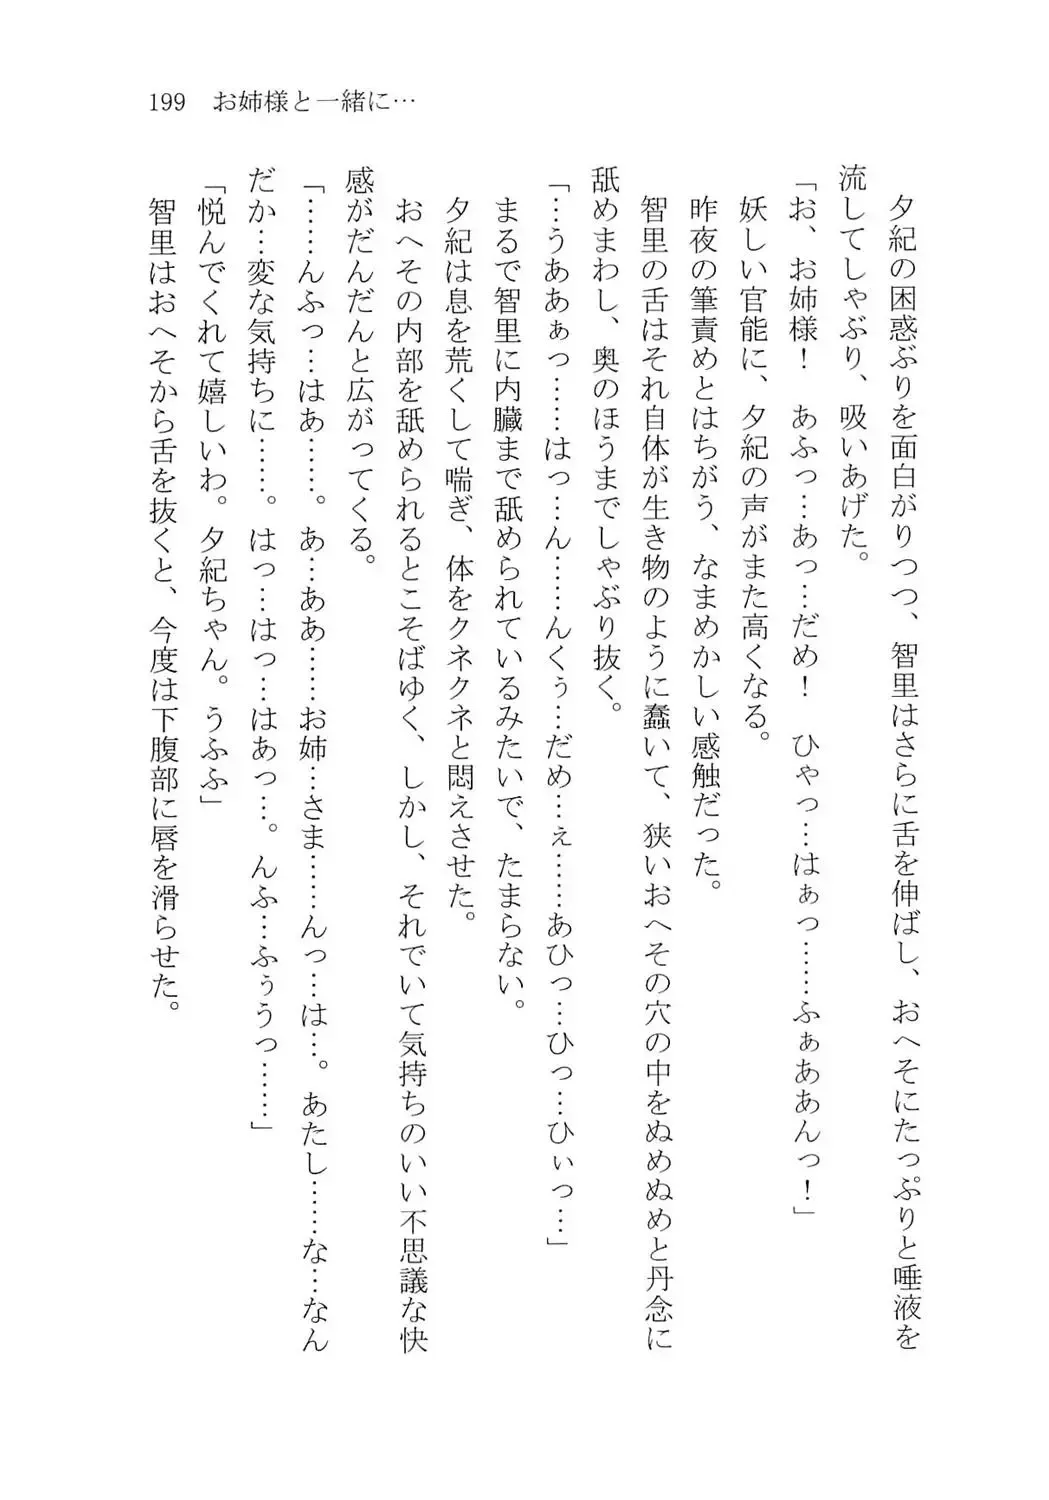 199　お姉様と一緒に…
　夕紀の困惑ぶりを面白がりつつ、智里はさらに舌を伸ばし、おへそにたっぷりと唾液を
流してしゃぶり、吸いあげた。
「お、お姉様！　あふっ…あっ…だめ！　ひゃっ…はぁっ……ふぁああんっ！」
　妖しい官能に、夕紀の声がまた高くなる。
　昨夜の筆責めとはちがう、なまめかしい感触だった。
　智里の舌はそれ自体が生き物のように蠢いて、狭いおへその穴の中をぬめぬめと丹念に
舐めまわし、奥のほうまでしゃぶり抜く。
「…うああぁっ……はっ…ん……んくぅ…だめ…ぇ……あひっ…ひっ…ひぃっ…」
　まるで智里に内臓まで舐められているみたいで、たまらない。
　夕紀は息を荒くして喘ぎ、体をクネクネと悶えさせた。
　おへその内部を舐められるとこそばゆく、しかし、それでいて気持ちのいい不思議な快
感がだんだんと広がってくる。
「……んふっ…はあ……。あ…ああ……お姉…さま……んっ…は…。あたし……な…なん
だか…変な気持ちに……。はっ…はっ…はあっ…。んふ…ふぅうっ……」
「悦んでくれて嬉しいわ。夕紀ちゃん。うふふ」
　智里はおへそから舌を抜くと、今度は下腹部に唇を滑らせた。